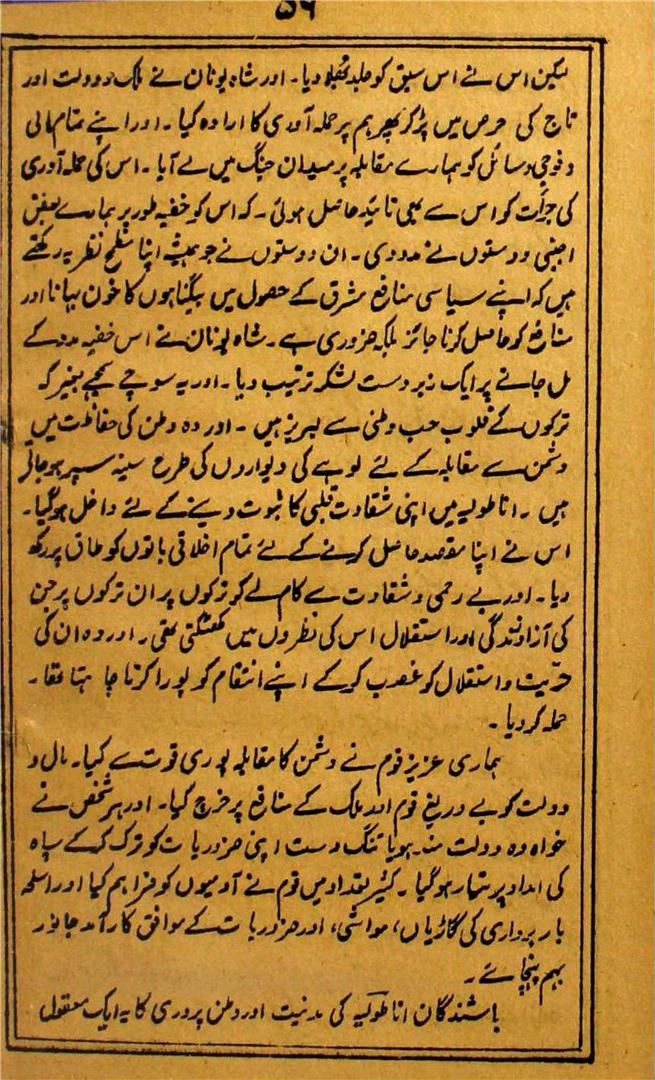 ۵۶
لیکن اس نے اس سبق کو جلد بھلا دیا۔ اور شاہ یونان نے ملک و دولت اور
تاج کی حرص میں پڑ کر پھر ہم پر حملہ آوری کا ارادہ کیا۔ اور اپنے تمام مالی
و فوجی وسائل کو ہمارے مقابلہ پر میدان جنگ میں لے آیا۔ اس کی حملہ آوری
کی جرأت کو اس سے بھی تائید حاصل ہوئی۔ کہ اس کو خفیہ طور پر ہمارے بعض
اجنبی دوستوں نے مدد دی۔ ان دوستوں نے جو ہمیشہ اپنا مطمح نظر یہ رکھتے
ہیں کہ اپنے سیاسی منافع مشرق کے حصول میں بیگناہوں کا خون بہانا اور
منافع کو حاصل کرنا جائز بلکہ ضروری ہے۔ شاہ یونان نے اس خفیہ مدد کے
مل جانے پر ایک زبردست لشکر ترتیب دیا۔ اور یہ سوچے سمجھے بغیر کہ
ترکوں کے قلوب حب وطنی سے لبریز ہیں۔ اور وہ وطن کی حفاظت میں
دشمن سے مقابلہ کے لئے لوہے کی دیواروں کی طرح سینہ سپر ہو جاتے
ہیں۔ اناطولیہ میں اپنی شقاوت قلبی کا ثبوت دینے کے لئے داخل ہو گیا۔
اس نے اپنا مقصد حاصل کرنے کے لئے تمام اخلاقی باتوں کو طاق پر رکھ
دیا۔ اور بے رحمی و شقاوت سے کام لے کر ترکوں پر ان ترکوں پر جن
کی آزاد زندگی اور استقلال اس کی نظروں میں کھٹکتی تھی۔ اور وہ ان کی
حریت و استقلال کو غصب کر کے اپنے انتقام کو پورا کرنا چاہتا تھا۔
حملہ کر دیا۔
ہماری عزیز قوم نے دشمن کا مقابلہ پوری قوت سے کیا۔ مال و
دولت کو بے دریغ قوم اور ملک کے منافع پر خرچ کیا۔ اور ہر شخص نے
خواہ وہ دولت مند ہو یا تنگ دست اپنی ضروریات کو ترک کر کے سپاہ
کی امداد پر تیار ہو گیا۔ کثیر تعداد میں قوم نے آدمیوں کو فراہم کیا اور اسلحہ
بار برداری کی گاڑیاں، مواشی، اور ضروریات کے موافق کارآمد جانور
بہم پہنچائے۔
باشندگان اناطولیہ کی مدنیت اور وطن پروری کا یہ ایک معقول